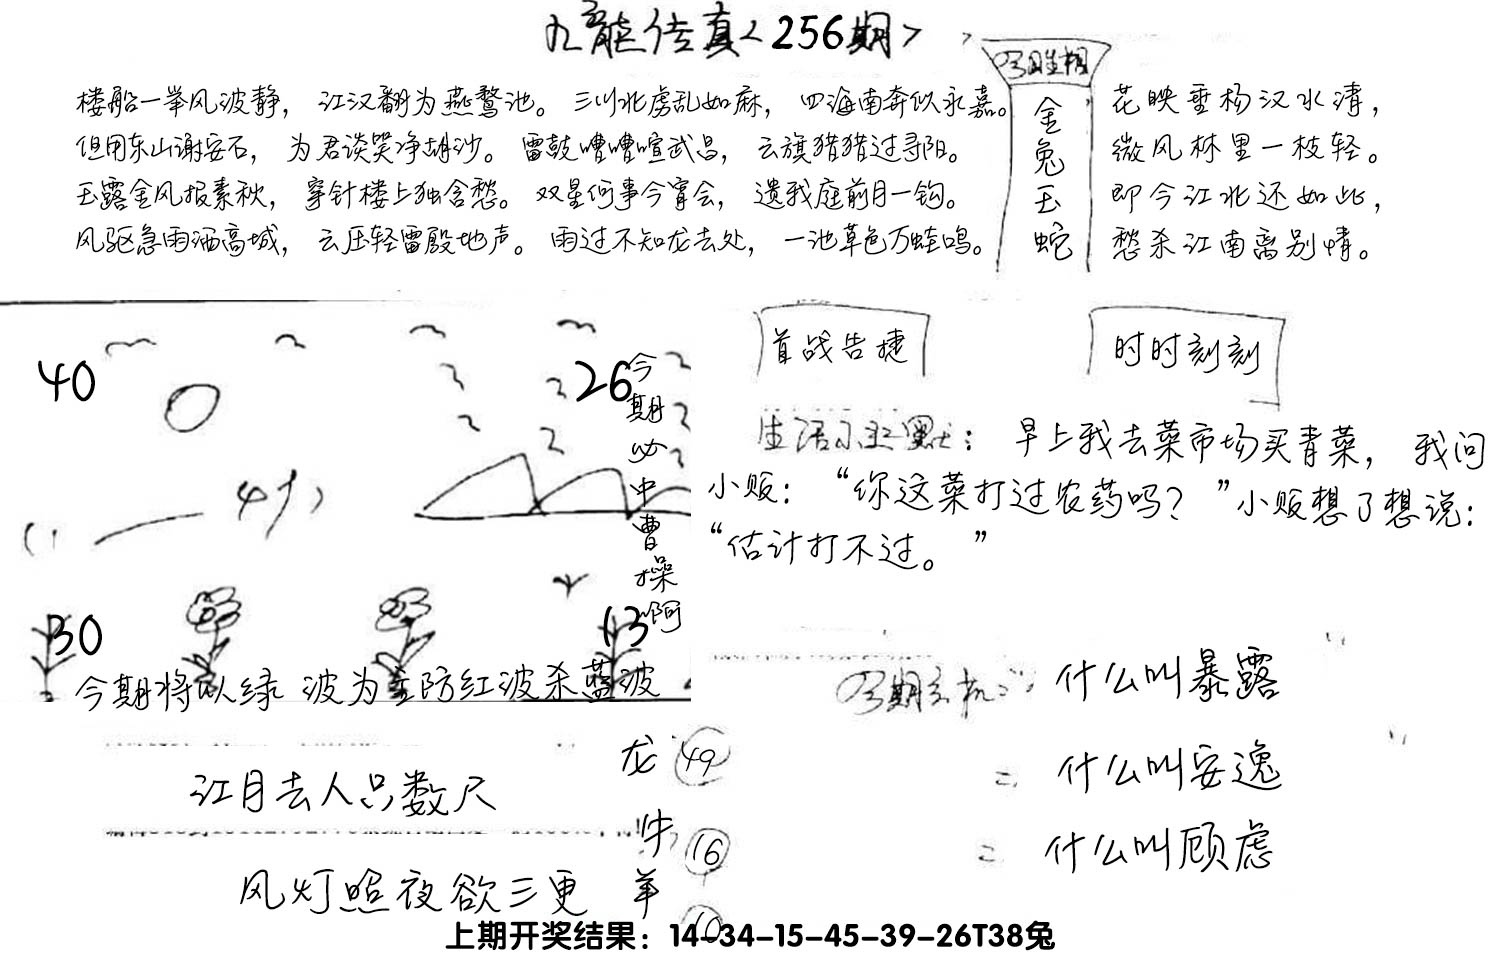 九龙传真<256期>
楼船一举风波静，江汉翻为燕鹜池。三川北虏乱如麻，四海南奔似永嘉。
但用东山谢安石，为君谈笑净胡沙。雷鼓嘈嘈喧武昌，云旗猎猎过寻阳。
玉露金风报素秋，穿针楼上独含愁。双星何事今宵会，遗我庭前月一钩。
风驱急雨洒高城，云压轻雷殷地声。雨过不知龙去处，一池草色万蛙鸣。
金兔玉蛇
花映垂杨汉水清，
微风林里一枝轻。
即今江北还如此，
愁杀江南离别情。
40
26
今期必中曹操啊
30
13
今期将以绿波为主防红波杀蓝波
首战告捷
时时刻刻
生活小幽默：早上我去菜市场买青菜，我问
小贩：“你这菜打过农药吗？”小贩想了想说：
“估计打不过。”
什么叫暴露
什么叫安逸
什么叫顾虑
江月去人只数尺
风灯照夜欲三更
龙 49
牛 16
羊 10
上期开奖结果：14-34-15-45-39-26T38兔